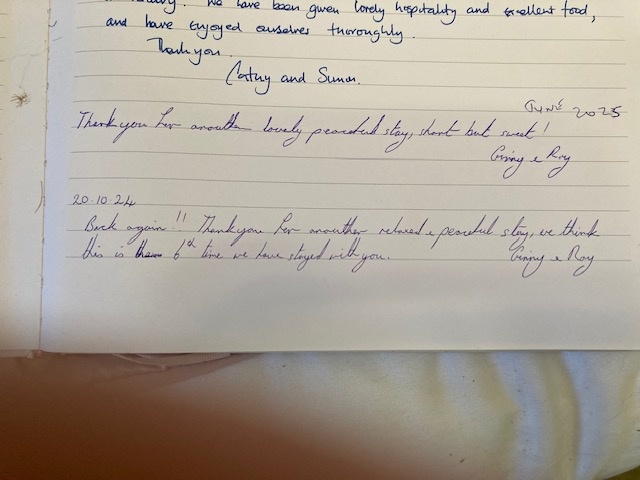 We have been given lovely hospitality and excellent food,
and have enjoyed ourselves thoroughly.
Thank you.
Cathy and Simon.
June 2025
Thank you for another lovely peaceful stay, short but sweet!
Ginny & Roy
20.10.24
Back again!! Thank you for another relaxed & peaceful stay, we think
this is 6th time we have stayed with you. Ginny & Roy